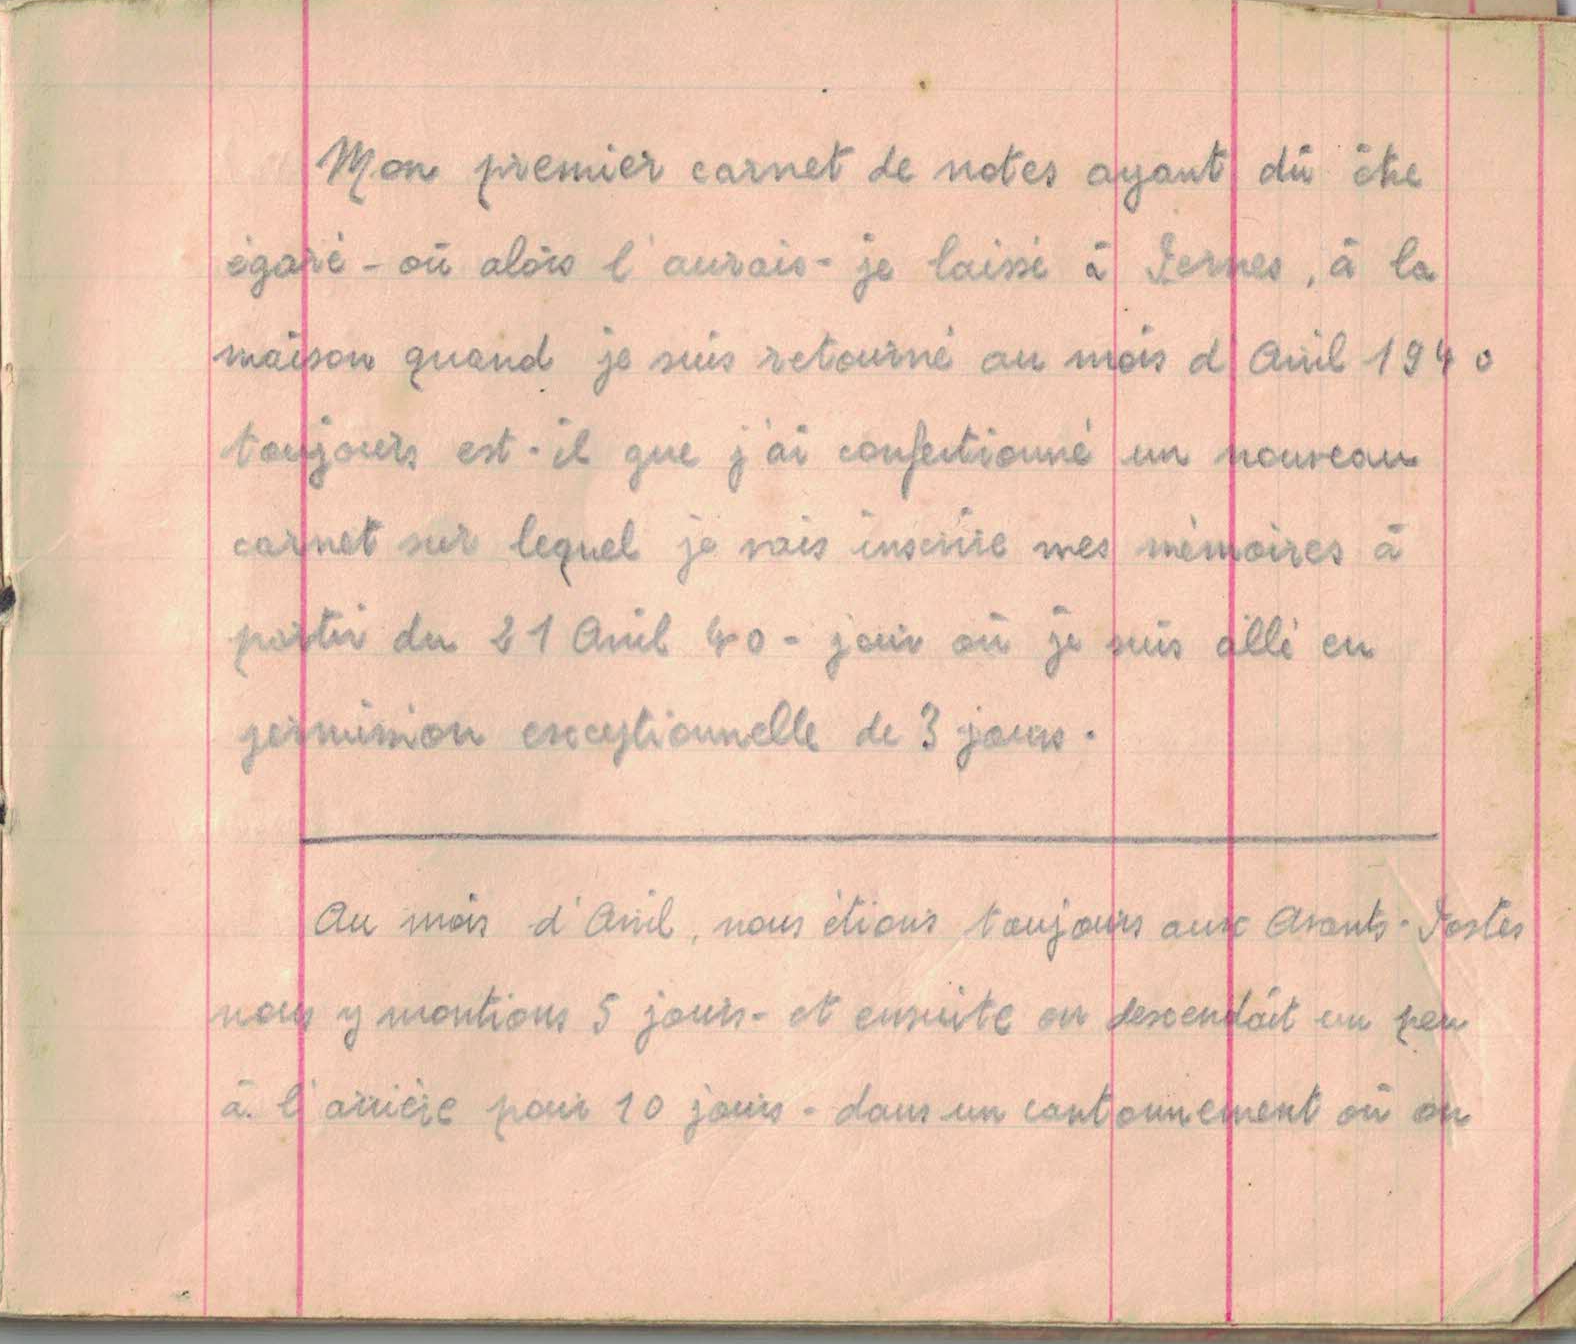 Mon premier carnet de notes ayant dû être
égaré - où alors l'aurais-je laissé à Pernes, à la
maison quand je suis retourné au mois d'Avril 1940
toujours est-il que j'ai confectionné un nouveau
carnet sur lequel je vais inscrire mes mémoires à
partir du 21 Avril 40 - jour où je suis allé en
permission exceptionnelle de 3 jours.
Au mois d'Avril, nous étions toujours aux Avants-Postes
nous y montions 5 jours - et ensuite on descendait un peu
à l'arrière pour 10 jours - dans un cantonnement où on